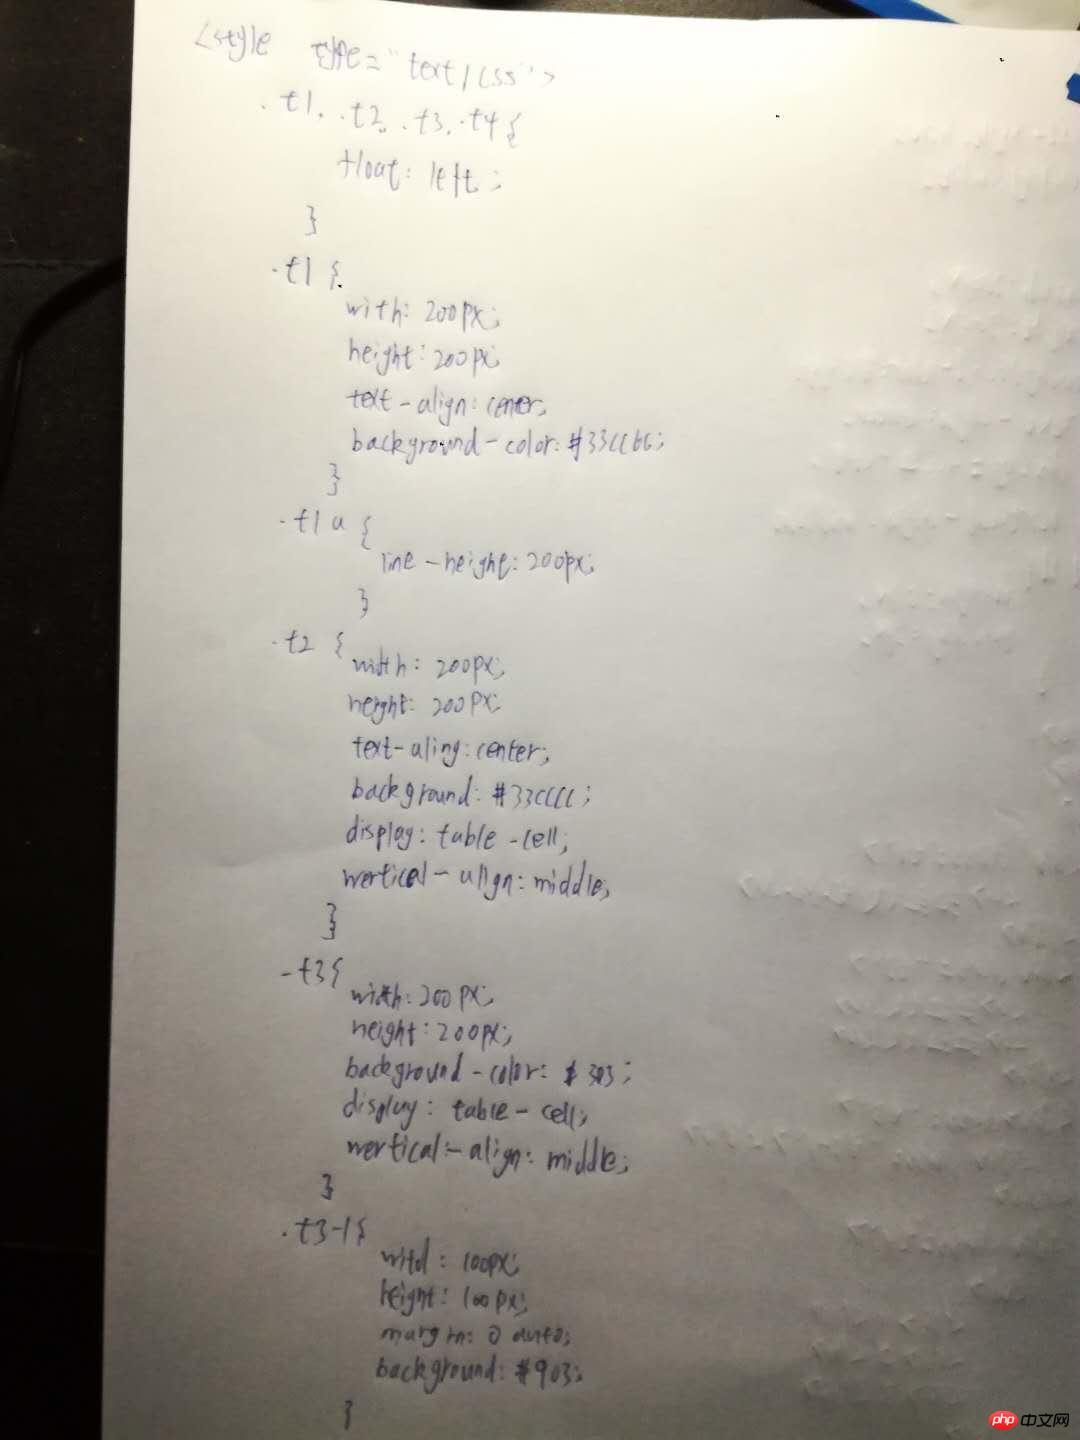 <style type="text/css">
.t1, .t2, .t3, .t4 {
float: left;
}
.t1 {
with: 200px;
height: 200px;
text-align: center;
background-color: #33CC66;
}
.t1 a {
line-height: 200px;
}
.t2 {
width: 200px;
height: 200px;
text-aling: center;
background: #33CCCC;
display: table-cell;
wertical-align: middle;
}
.t3 {
width: 200px;
height: 200px;
background-color: #303;
display: table-cell;
wertical-align: middle;
}
.t3-1 {
witd: 100px;
height: 100px;
margin: 0 auto;
background: #903;
}
php 中文网